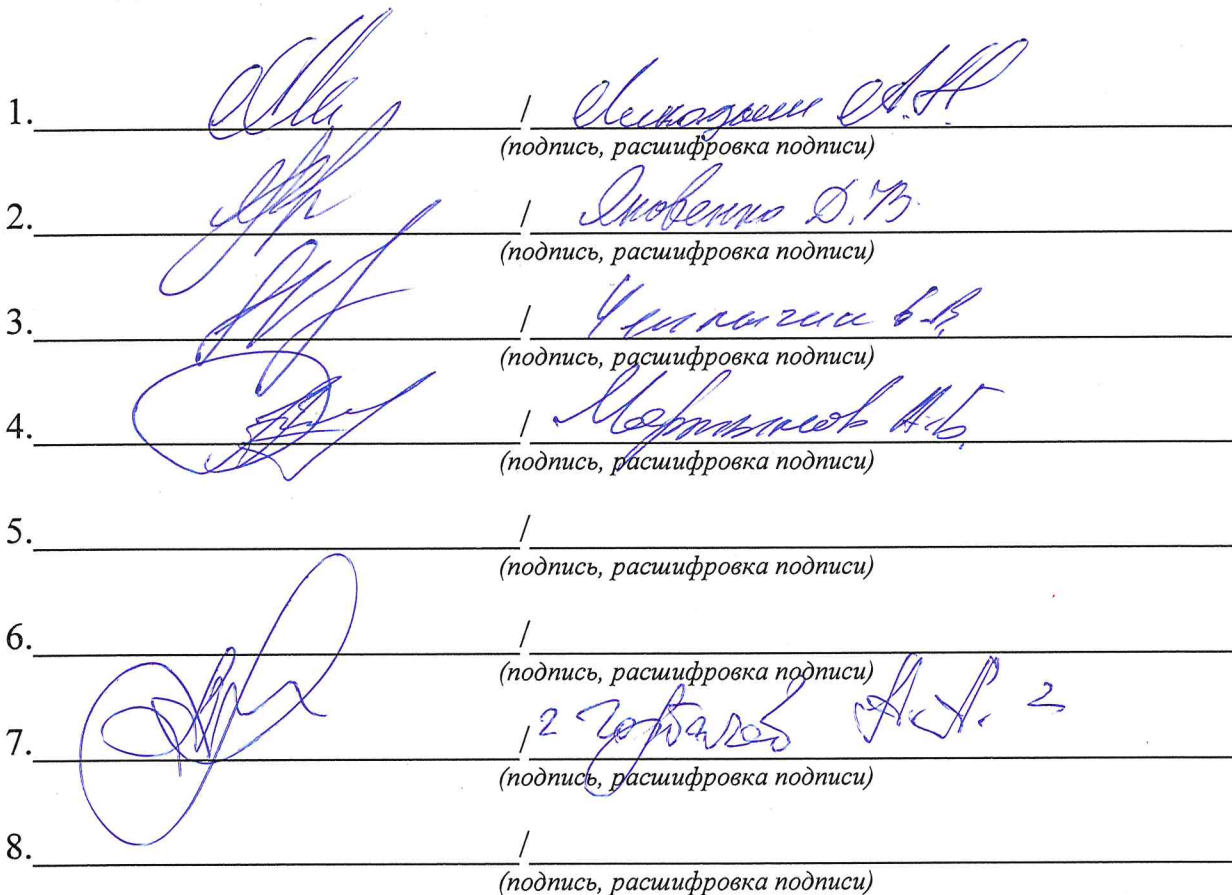 1. /
(подпись, расшифровка подписи)
2. / Яковенко Д.В.
(подпись, расшифровка подписи)
3. /
(подпись, расшифровка подписи)
4. / Мартынов А.Б.
(подпись, расшифровка подписи)
5. /
(подпись, расшифровка подписи)
6. /
(подпись, расшифровка подписи)
7. / Горбачёв А.А.
(подпись, расшифровка подписи)
8. /
(подпись, расшифровка подписи)